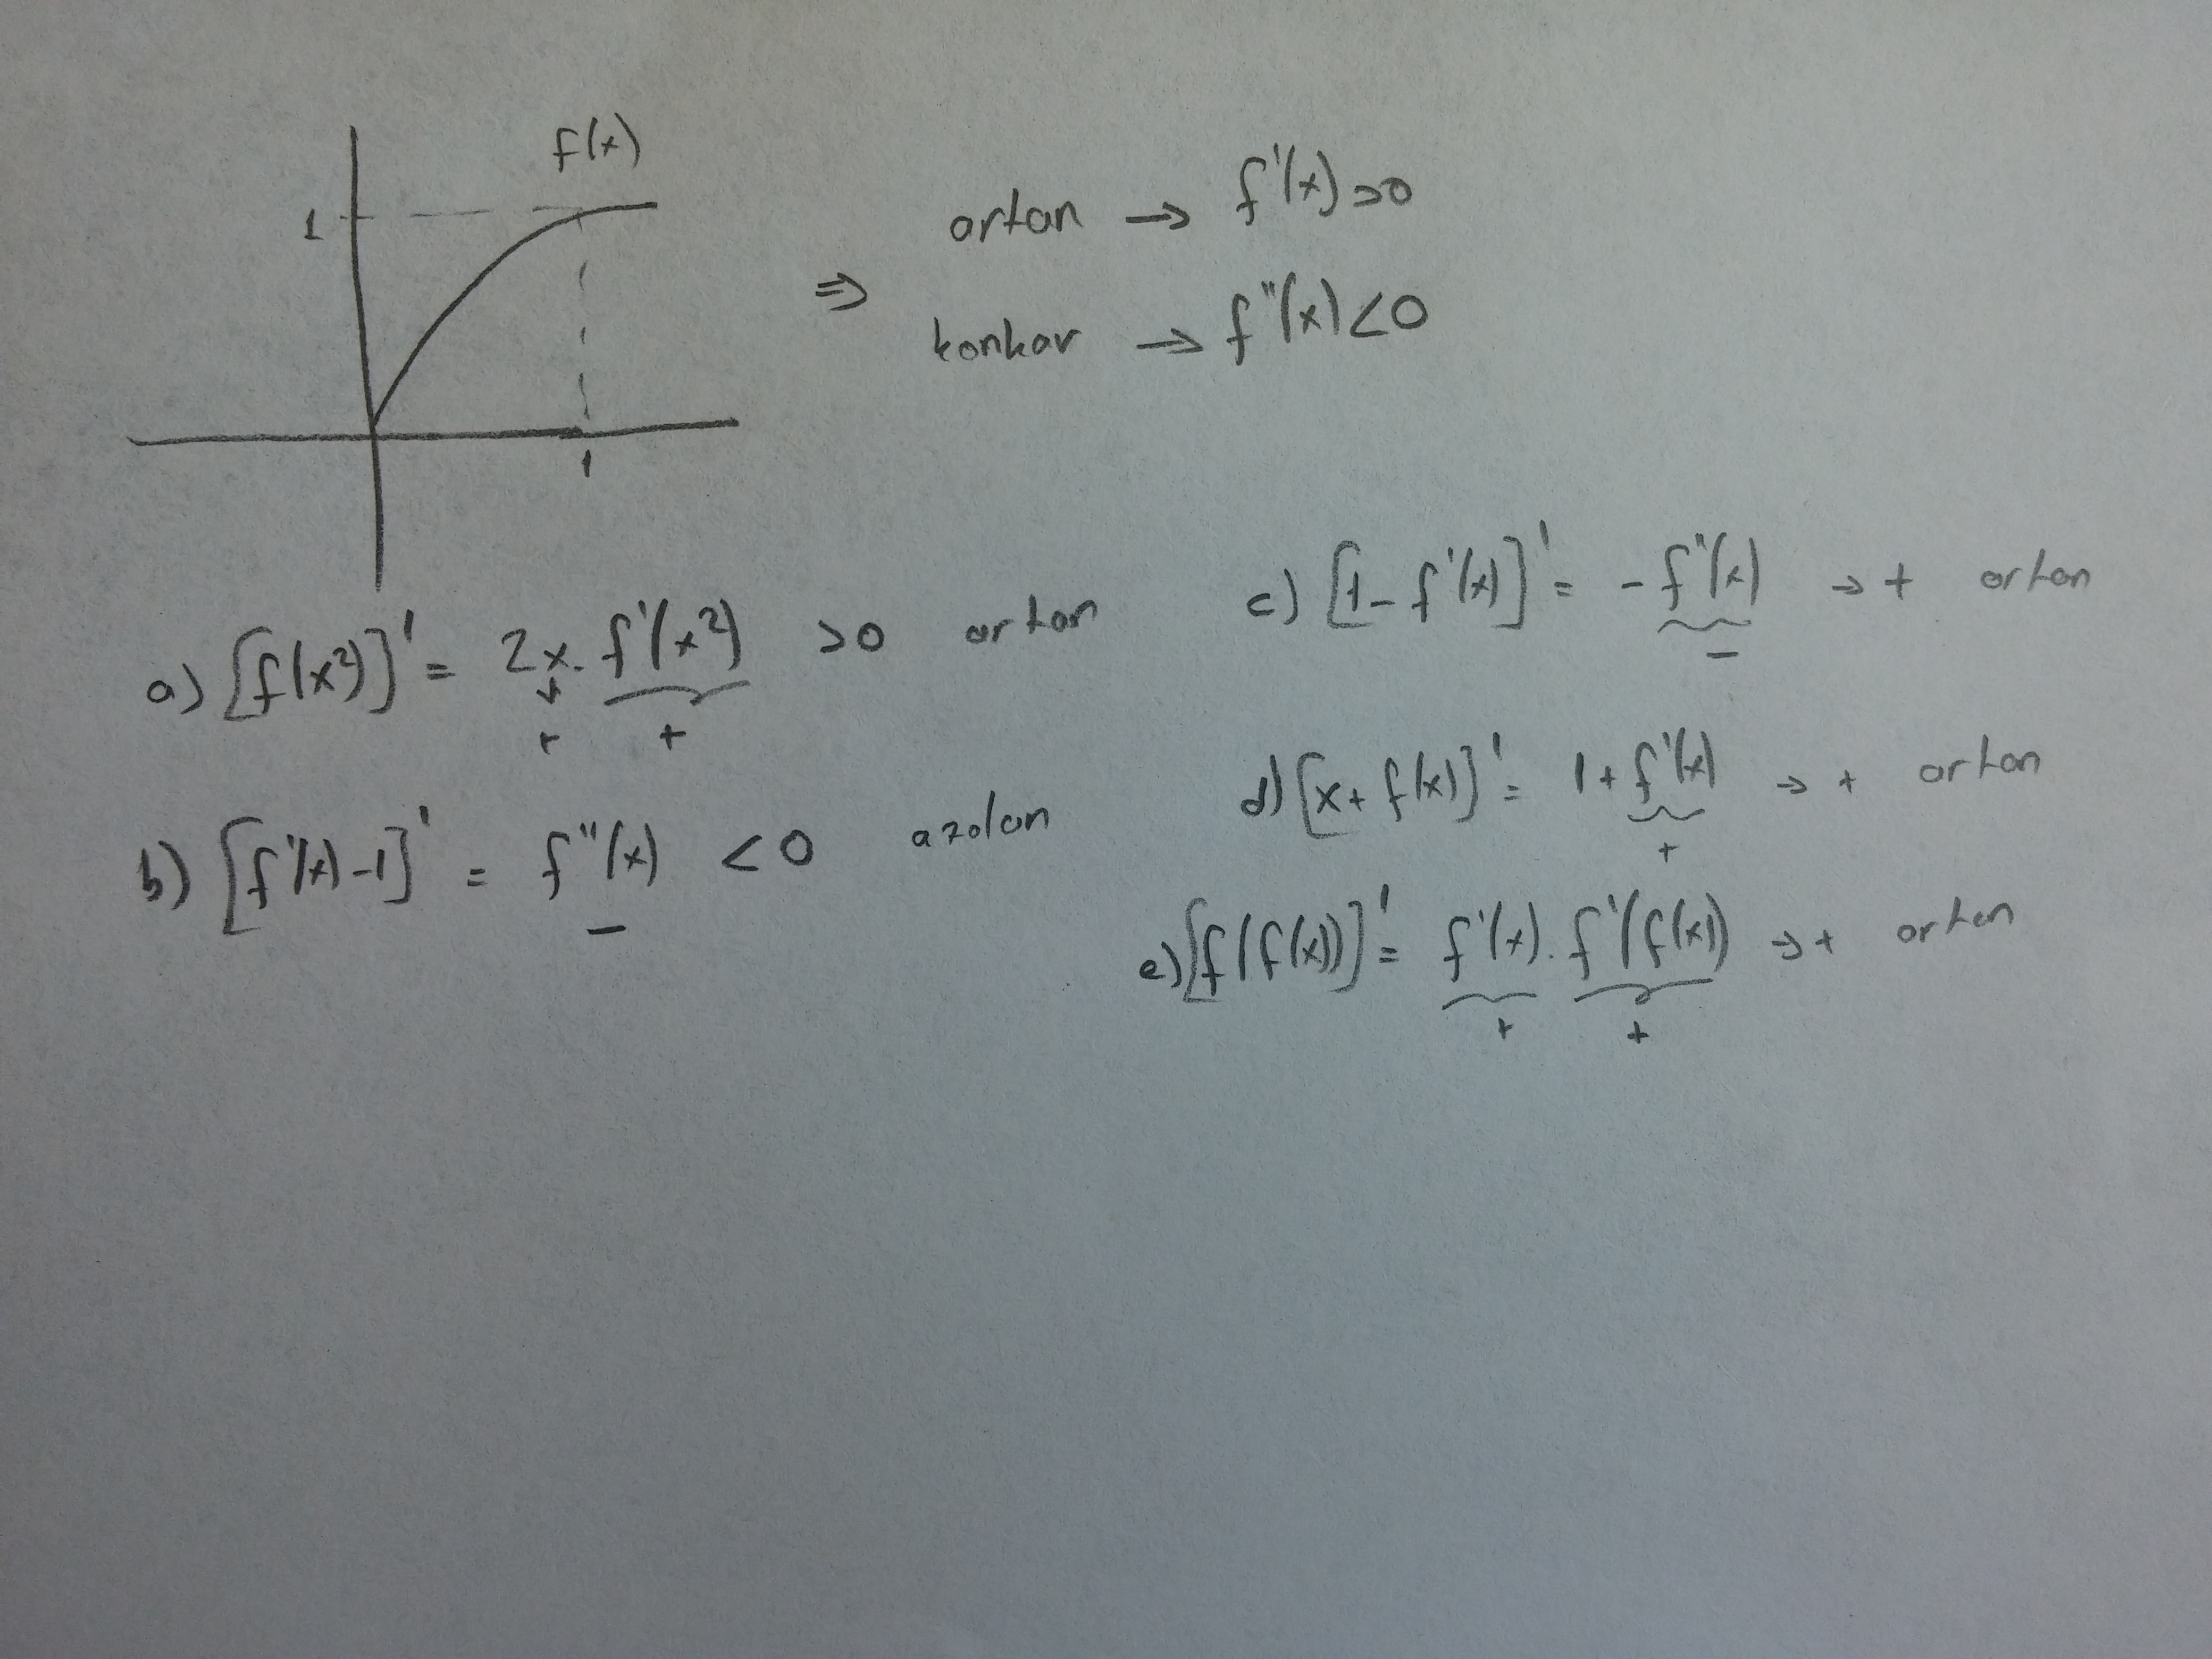 f(x)
1
1
⇒
artan → f'(x)>0
konkav → f''(x)<0
a) [f(x²)]' = 2x. f'(x²) >0 artan
+ +
b) [f'(x)-1]' = f''(x) <0 azalan
−
c) [1-f'(x)]' = -f''(x) → + artan
−
d) [x+f(x)]' = 1+f'(x) → + artan
+
e) [f(f(x))]' = f'(x). f'(f(x)) → + artan
+ +